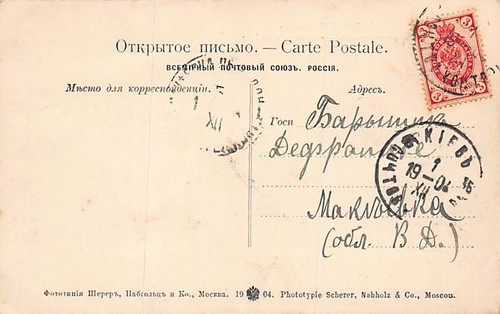 Открытое письмо. — Carte Postale.
ВСЕМІРНЫЙ ПОЧТОВЫЙ СОЮЗЪ. РОССІЯ.
Мѣсто для корреспонденціи.
Адресъ.
3
3
1
XII
Госп Барышник
КІЕВЪ
1
19—04
XII
Макѣевка
(обл. В. Д.)
Фототипія Шереръ, Набгольцъ и Ко., Москва. 19 04. Phototypie Scherer, Nabholz & Co., Moscou.